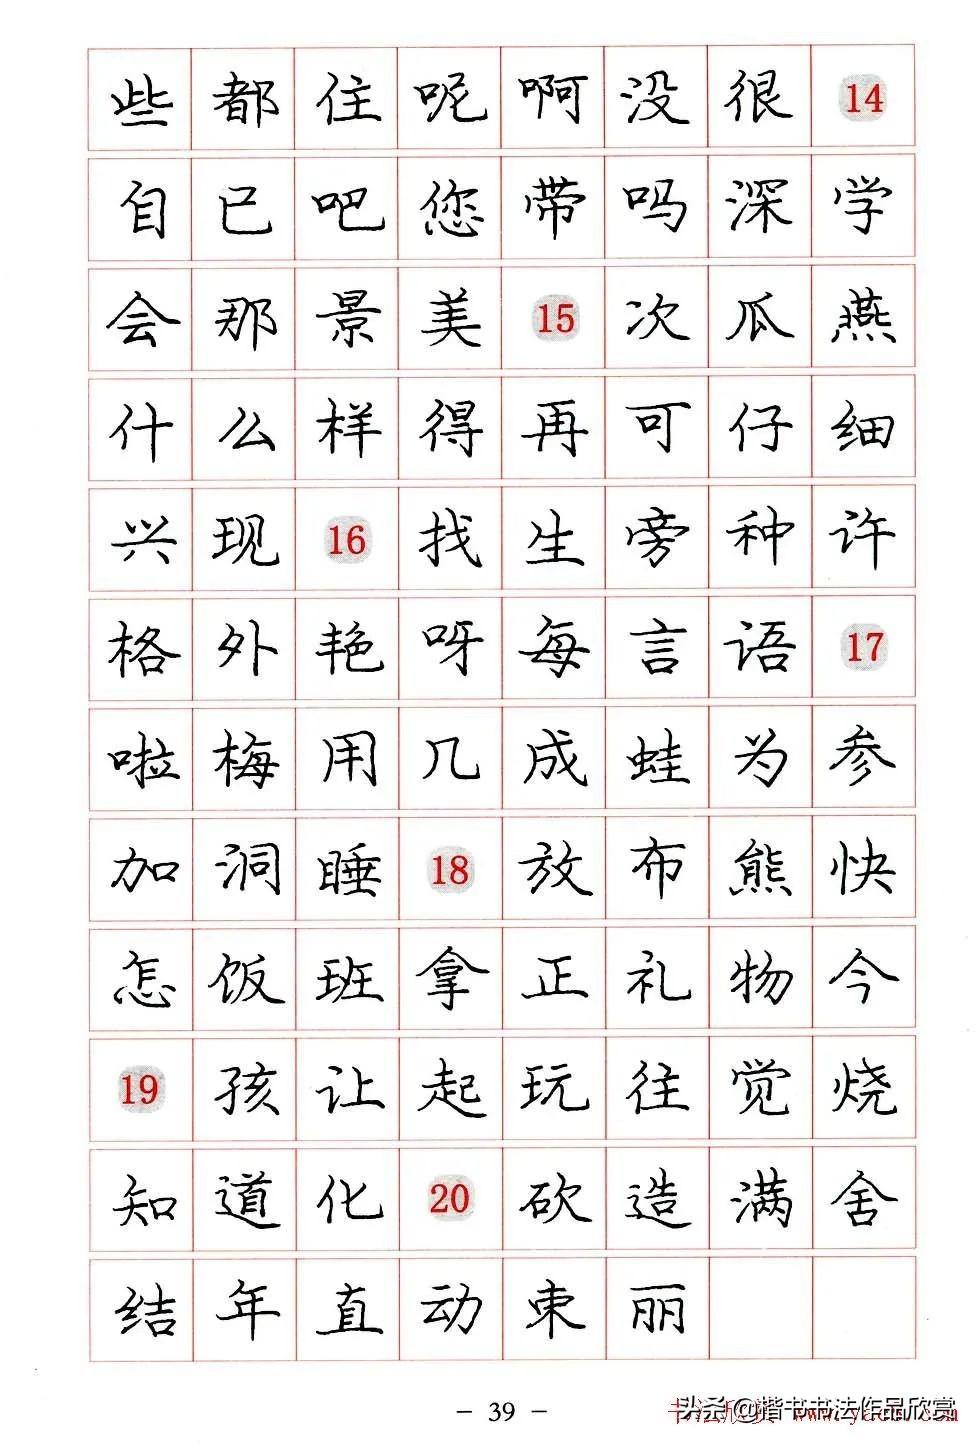 些都住呢啊没很14
自已吧您带吗深学
会那景美15次瓜燕
什么样得再可仔细
兴现16找生旁种许
格外艳呀每言语17
啦梅用几成蛙为参
加洞睡18放布熊快
怎饭班拿正礼物今
19孩让起玩往觉烧
知道化20砍造满舍
结年直动束丽
- 39 -
头条@楷书书法作品欣赏